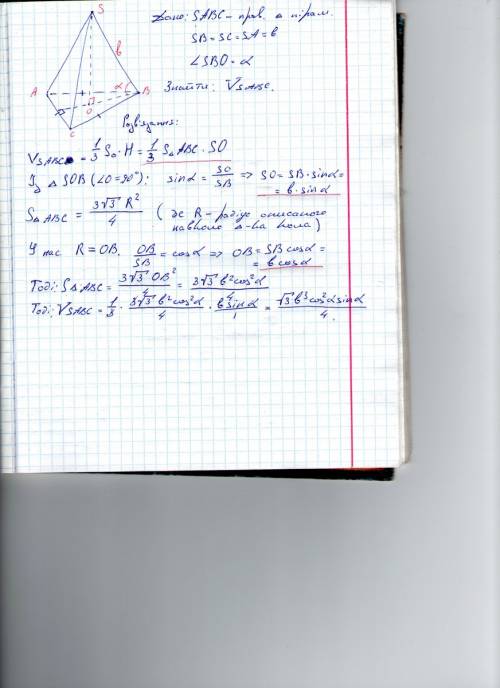 S
Дано: SABC – прав. △ пірам.
SB = SC = SA = в
∠SBO = α
Знайти: V SABC.
в
A
α
B
O
C
Розв'язання:
V SABC = 1/3 So · H = 1/3 S△ABC · SO
Із △SOB (∠O = 90°): sinα = SO/SB => SO = SB · sinα =
= в · sinα
S△ABC = 3√3 R²/4 (де R – радіус описаного
навколо △-ка кола)
У нас R = OB. OB/SB = cosα => OB = SB cosα =
= в cosα
Тоді: S△ABC = 3√3 OB²/4 = 3√3 в² cos²α/4
Тоді: V SABC = 1/3 · 3√3 в² cos²α/4 · в sinα/1 = √3 в³ cos²α sinα/4.